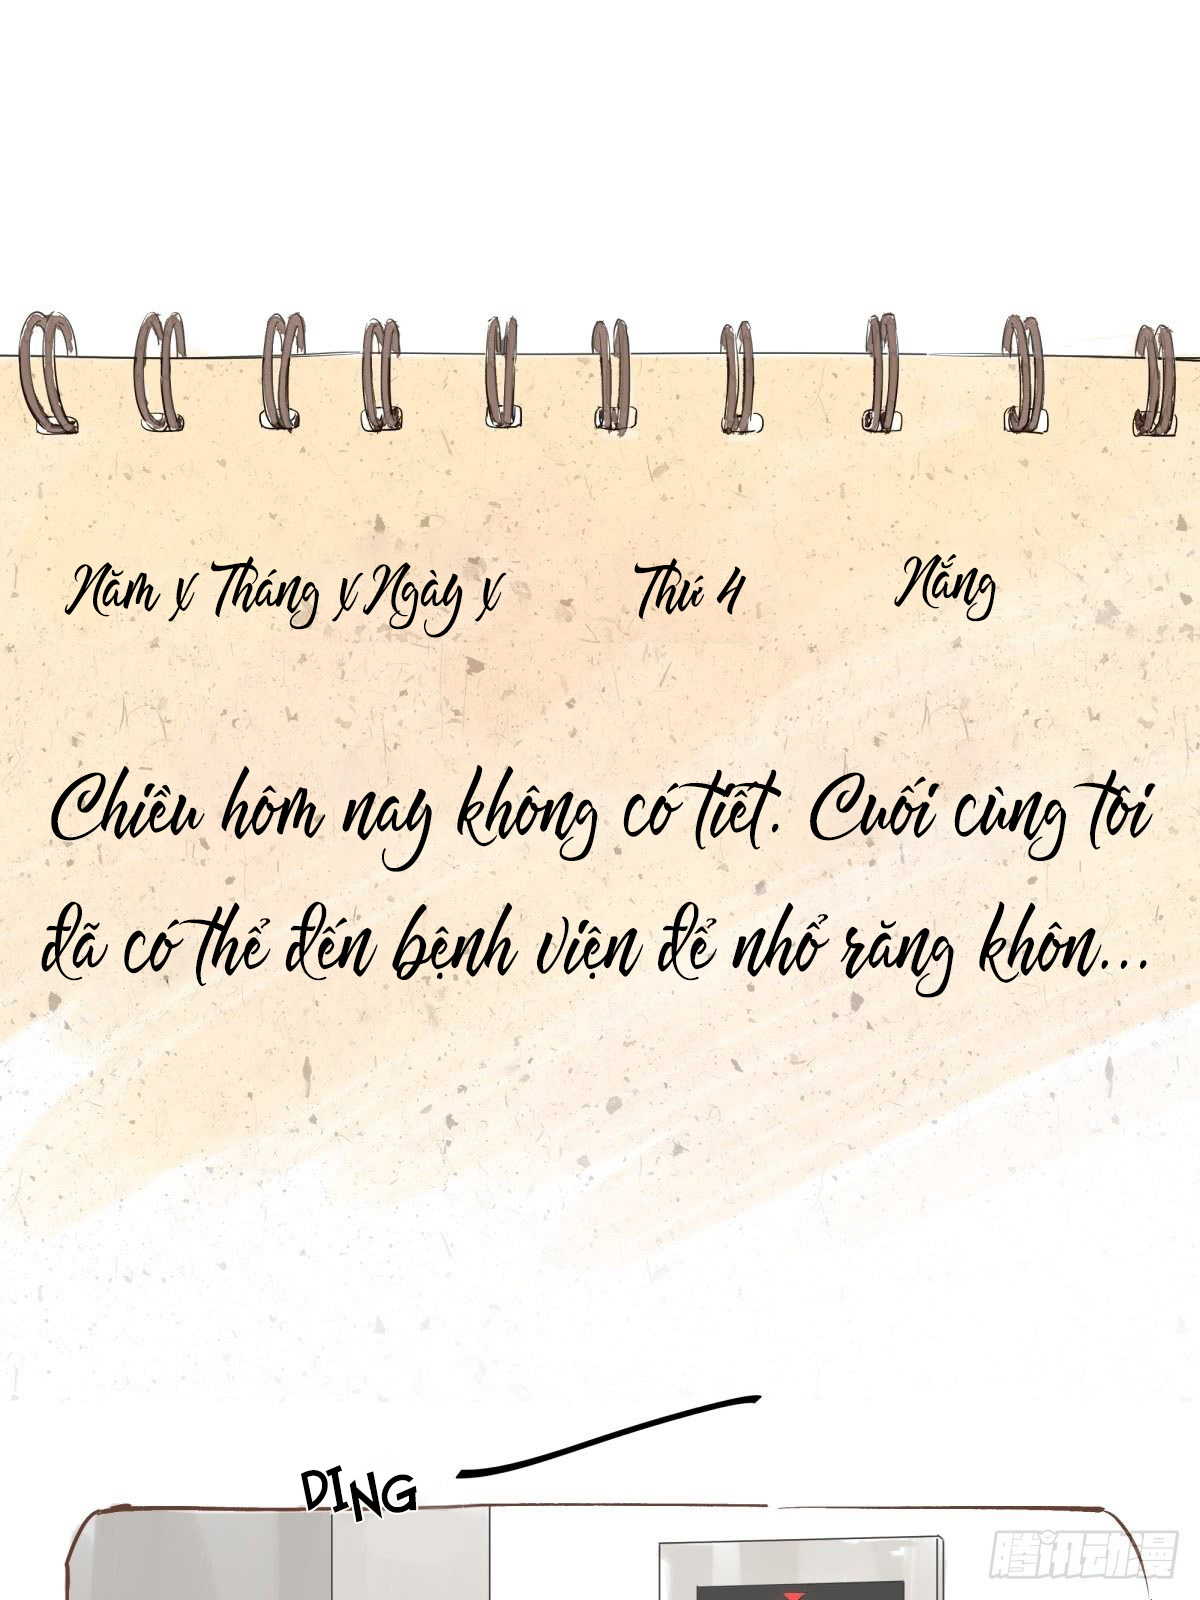 Năm x Tháng x Ngày x Thứ 4 Nắng
Chiều hôm nay không có tiết. Cuối cùng tôi
đã có thể đến bệnh viện để nhổ răng khôn...
DING
腾讯动漫